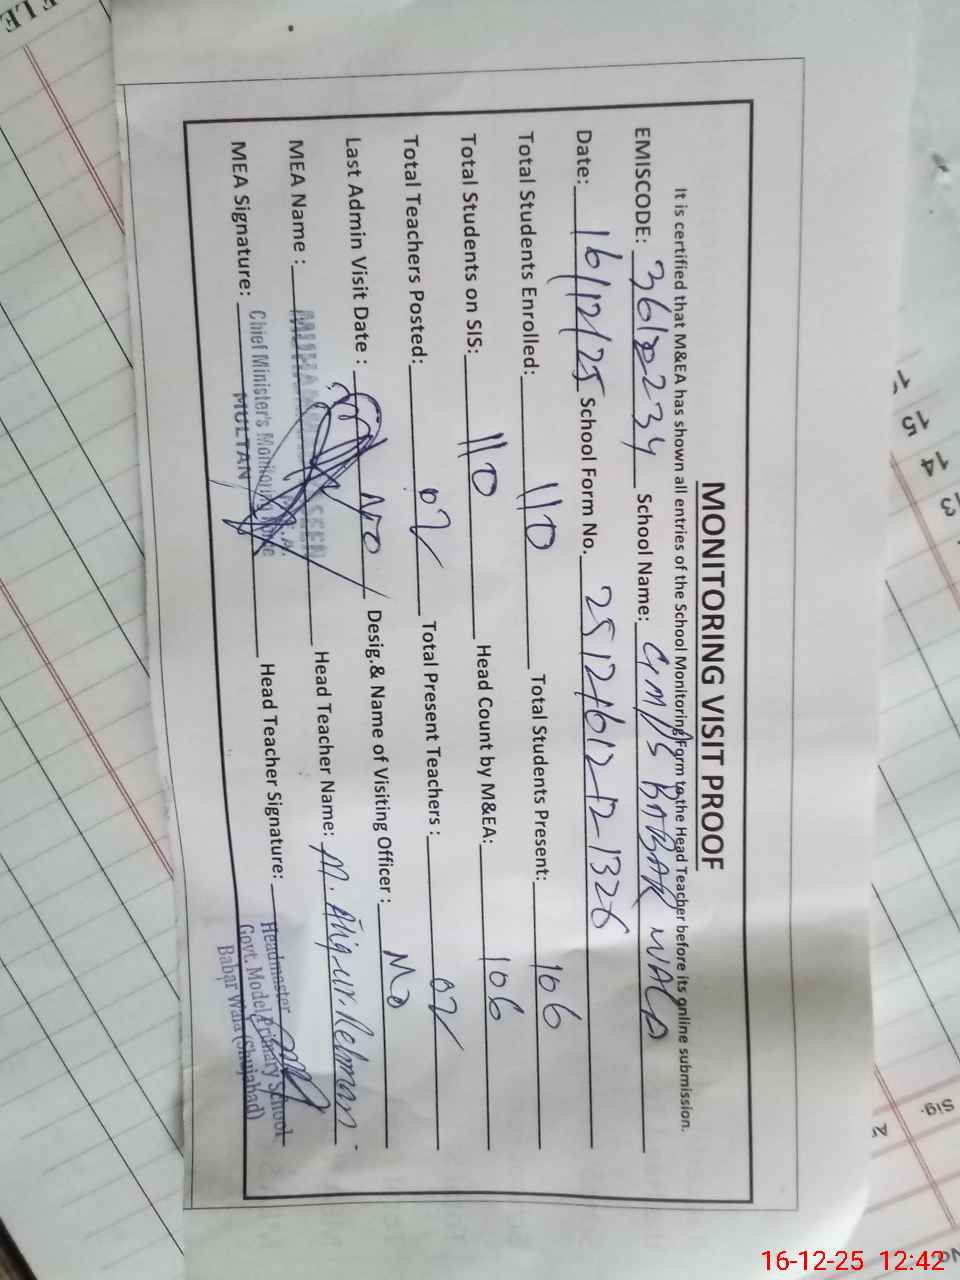 MONITORING VISIT PROOF
It is certified that M&EA has shown all entries of the School Monitoring Form to the Head Teacher before its online submission.
EMISCODE: School Name: GMPS BABAR WALA
Date: 16/12/25 School Form No.
Total Students Enrolled: 110 Total Students Present: 106
Total Students on SIS: 110 Head Count by M&EA: 106
Total Teachers Posted: 02 Total Present Teachers : 02
Last Admin Visit Date : Desig.& Name of Visiting Officer :
MEA Name : Head Teacher Name: Rehman
MEA Signature: Head Teacher Signature:
Chief Minister's Monitoring
MULTAN
Headmaster
Govt. Model Primary School
Babar Wala (Shujabad)
15
14
Sig.
2
16-12-25 12:42